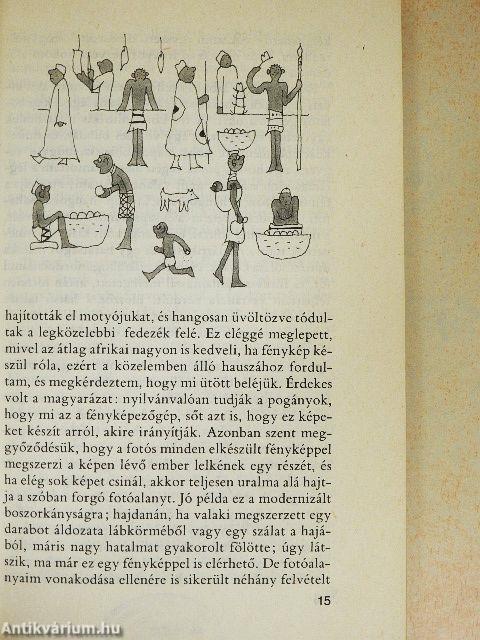 hajították el motyójukat, és hangosan üvöltözve tódul-
tak a legközelebbi fedezék felé. Ez eléggé meglepett,
mivel az átlag afrikai nagyon is kedveli, ha fénykép ké-
szül róla, ezért a közelemben álló hauszához fordul-
tam, és megkérdeztem, hogy mi ütött beléjük. Érdekes
volt a magyarázat: nyilvánvalóan tudják a pogányok,
hogy mi az a fényképezőgép, sőt azt is, hogy ez képe-
ket készít arról, akire irányítják. Azonban szent meg-
győződésük, hogy a fotós minden elkészült fényképpel
megszerzi a képen lévő ember lelkének egy részét, és
ha elég sok képet csinál, akkor teljesen uralma alá hajt-
ja a szóban forgó fotóalanyt. Jó példa ez a modernizált
boszorkányságra; hajdanán, ha valaki megszerzett egy
darabot áldozata lábkörméből vagy egy szálat a hajá-
ból, máris nagy hatalmat gyakorolt fölötte; úgy lát-
szik, ma már ez egy fényképpel is elérhető. De fotóala-
nyaim vonakodása ellenére is sikerült néhány felvételt
15
Antikvárium.hu